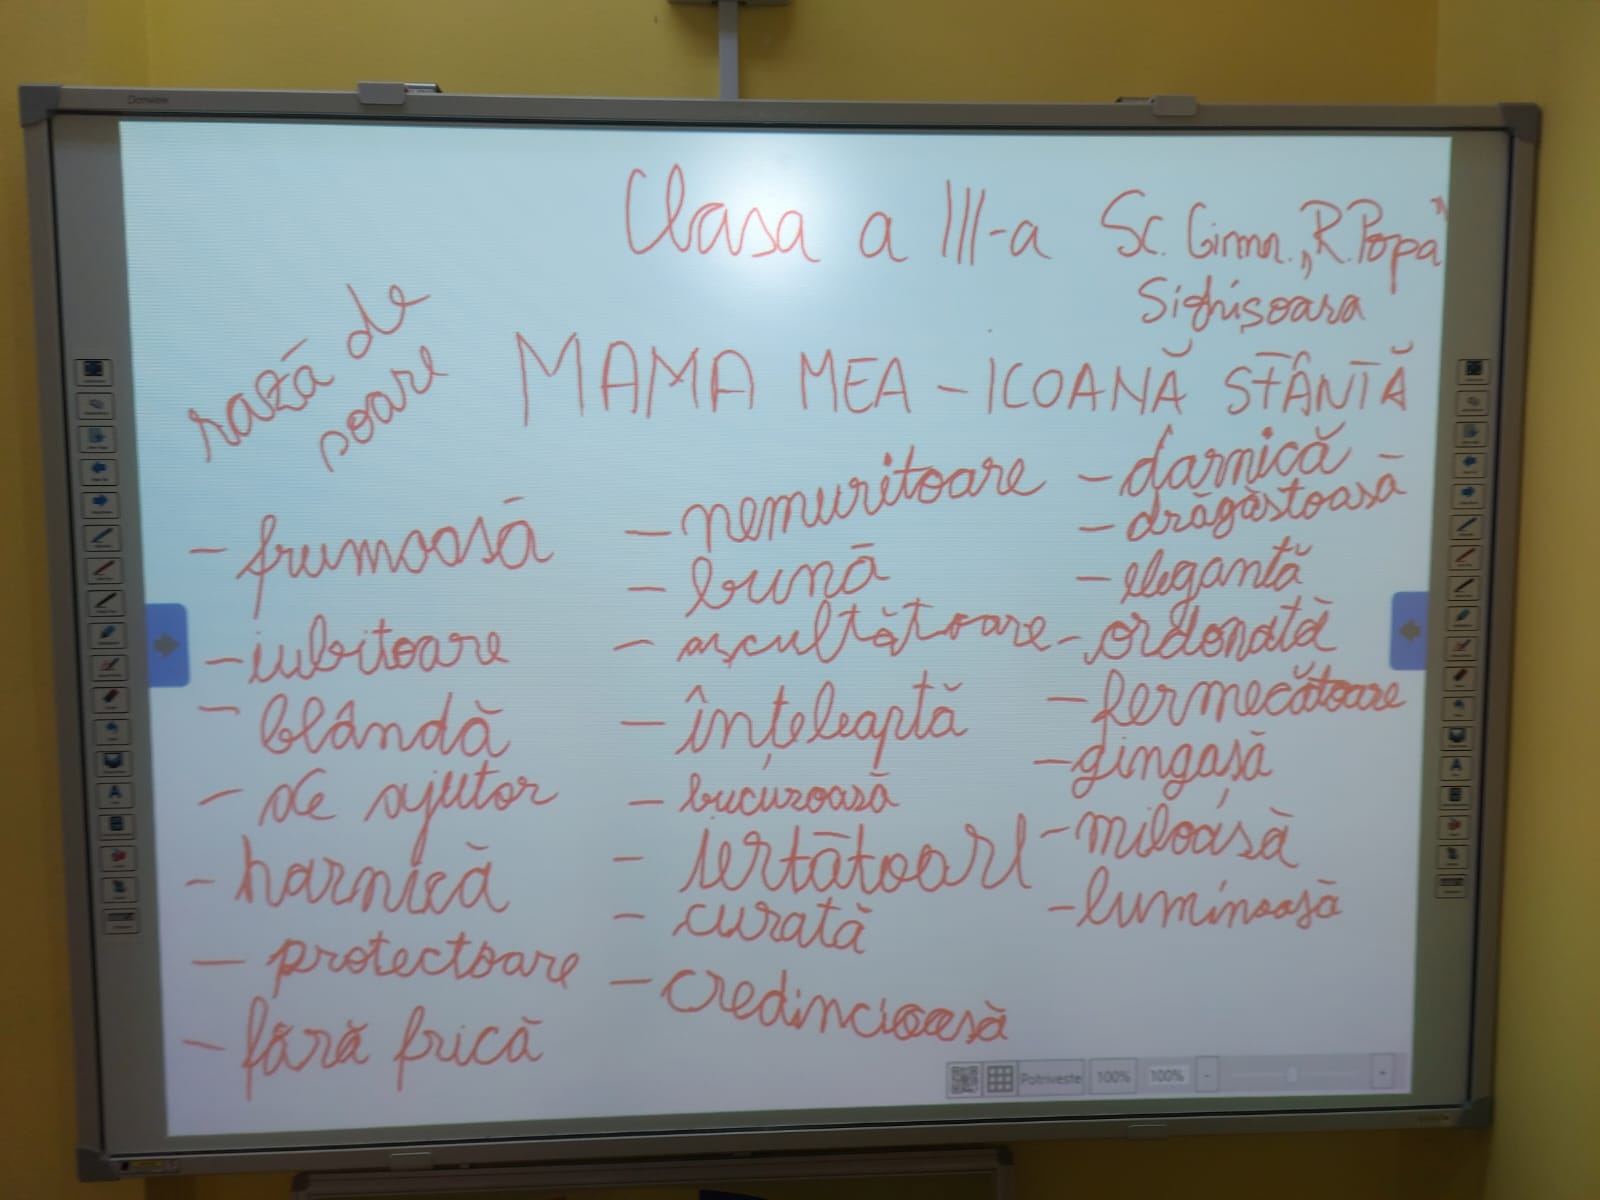 Clasa a III-a Sc. Gimn. „R. Popa"
Sighișoara
rază de
soare
MAMA MEA - ICOANĂ SFÂNTĂ
- frumoasă
- iubitoare
- blândă
- de ajutor
- harnică
- protectoare
- fără frică
- nemuritoare
- bună
- ascultătoare
- înțeleaptă
- bucuroasă
- iertătoare
- curată
- credincioasă
- darnică
- drăgăstoasă
- elegantă
- ordonată
- fermecătoare
- gingașă
- miloasă
- luminoasă
Potriveste 100% 100%